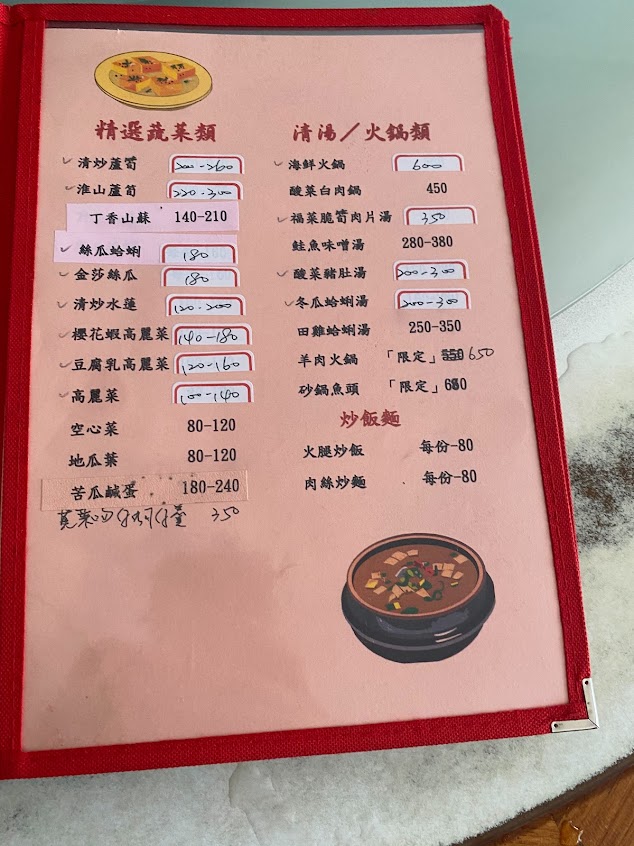 精選蔬菜類
清炒蘆筍 200-260
淮山蘆筍 220-300
丁香山蘇 140-210
絲瓜蛤蜊 180
金莎絲瓜 180
清炒水蓮 120-200
櫻花蝦高麗菜 140-180
豆腐乳高麗菜 120-160
高麗菜 100-140
空心菜 80-120
地瓜葉 80-120
苦瓜鹹蛋 180-240
350
清湯／火鍋類
海鮮火鍋 600
酸菜白肉鍋 450
福菜脆筍肉片湯 350
鮭魚味噌湯 280-380
酸菜豬肚湯 200-300
冬瓜蛤蜊湯 200-300
田雞蛤蜊湯 250-350
羊肉火鍋 「限定」 650
砂鍋魚頭 「限定」
炒飯麵
火腿炒飯 每份-80
肉絲炒麵 每份-80